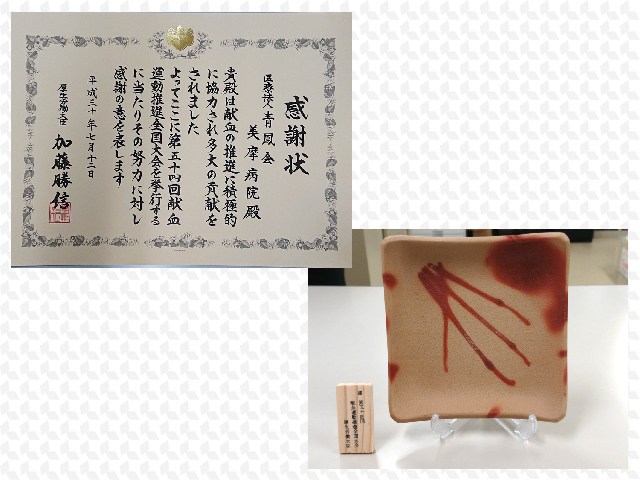 感謝状
医療法人青鳳会
美摩病院殿
貴殿は献血の推進に積極的
に協力され多大の貢献を
されました
よってここに第五十四回献血
運動推進全国大会を挙行する
に当たりその努力に対し
感謝の意を表します
平成三十年七月十二日
厚生労働大臣
加藤勝信
厚生労働大臣